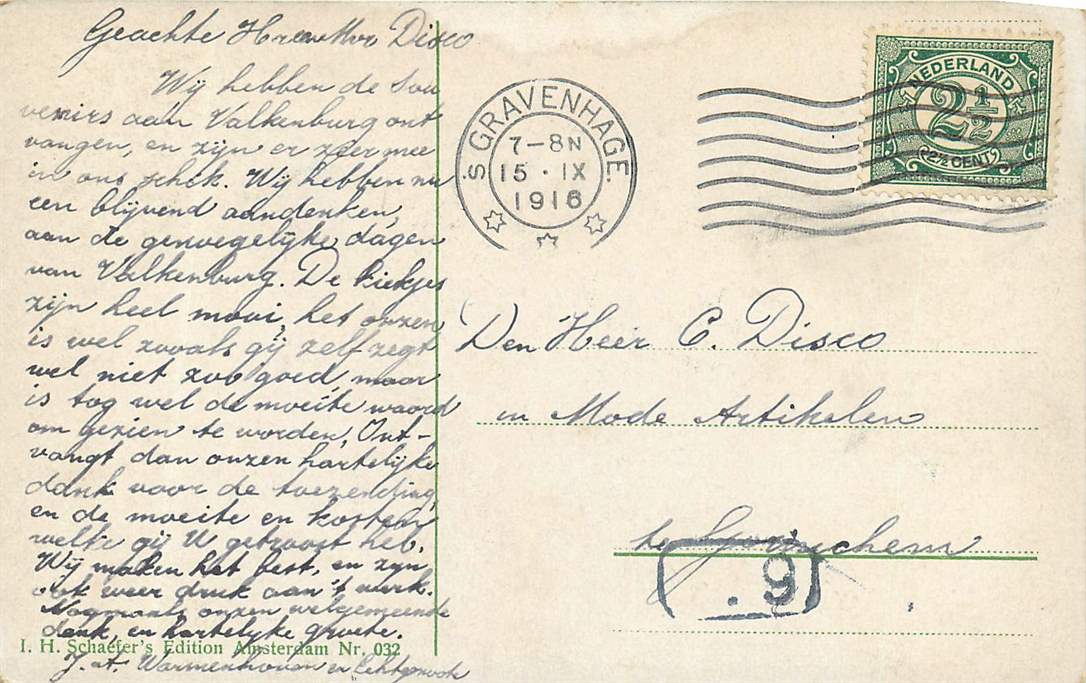 Geachte Heer Disco
Wij hebben de Sou
venirs aan Valkenburg ont
vangen, en zijn er zeer mee
in ons schik. Wij hebben nu
een blijvend aandenken,
aan de genoegelijke dagen
van Valkenburg. De kiekjes
zijn heel mooi, het onzen
is wel zooals gij zelf zegt
wel niet zoo goed, maar
is tog wel de moeite waard
om gezien te worden. Ont-
vangt dan onzen hartelijke
dank voor de toezending,
en de moeite en kosten
welke gij U getroost heb.
Wij maken het best, en zijn
ook weer druk aan 't werk.
Nogmaals onzen welgemeende
dank, en hartelijke groete.
J. at. Warmenhoven en Echtgenoote
I. H. Schaefer's Edition Amsterdam Nr. 032
'S GRAVENHAGE.
7-8N
15 · IX
1916
NEDERLAND
2½
(2½ CENT)
Den Heer C. Disco
in Mode Artikelen
te Gorinchem
. 9